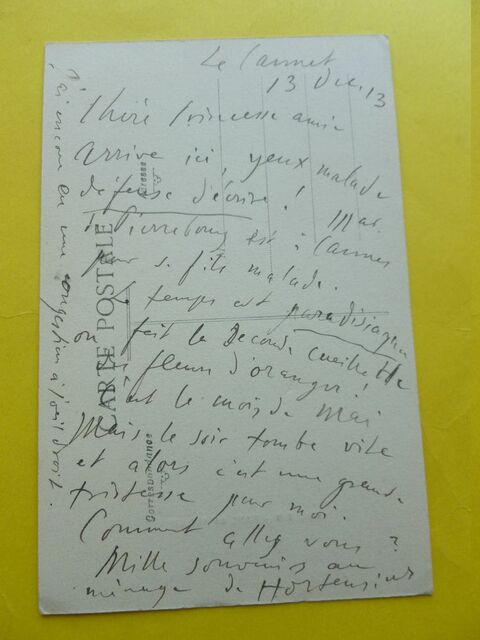 Le Cannet
13 Dec. 13
Chère Princesse amie
Arrive ici, yeux malade
défense d'écrire! Mar.
Pierrebourg est à Cannes
pour s. fils malade.
Le temps est paradisiaque
on fait la seconde cueillette
de fleurs d'oranger!
C'est le mois de Mai
Mais le soir tombe vite
et alors c'est une grande
tristesse pour moi.
Comment allez vous?
Mille souvenirs au
ménage de Hortensius
J'ai encore eu une congestion à l'œil droit.
CARTE POSTALE
Correspondance
Adresse